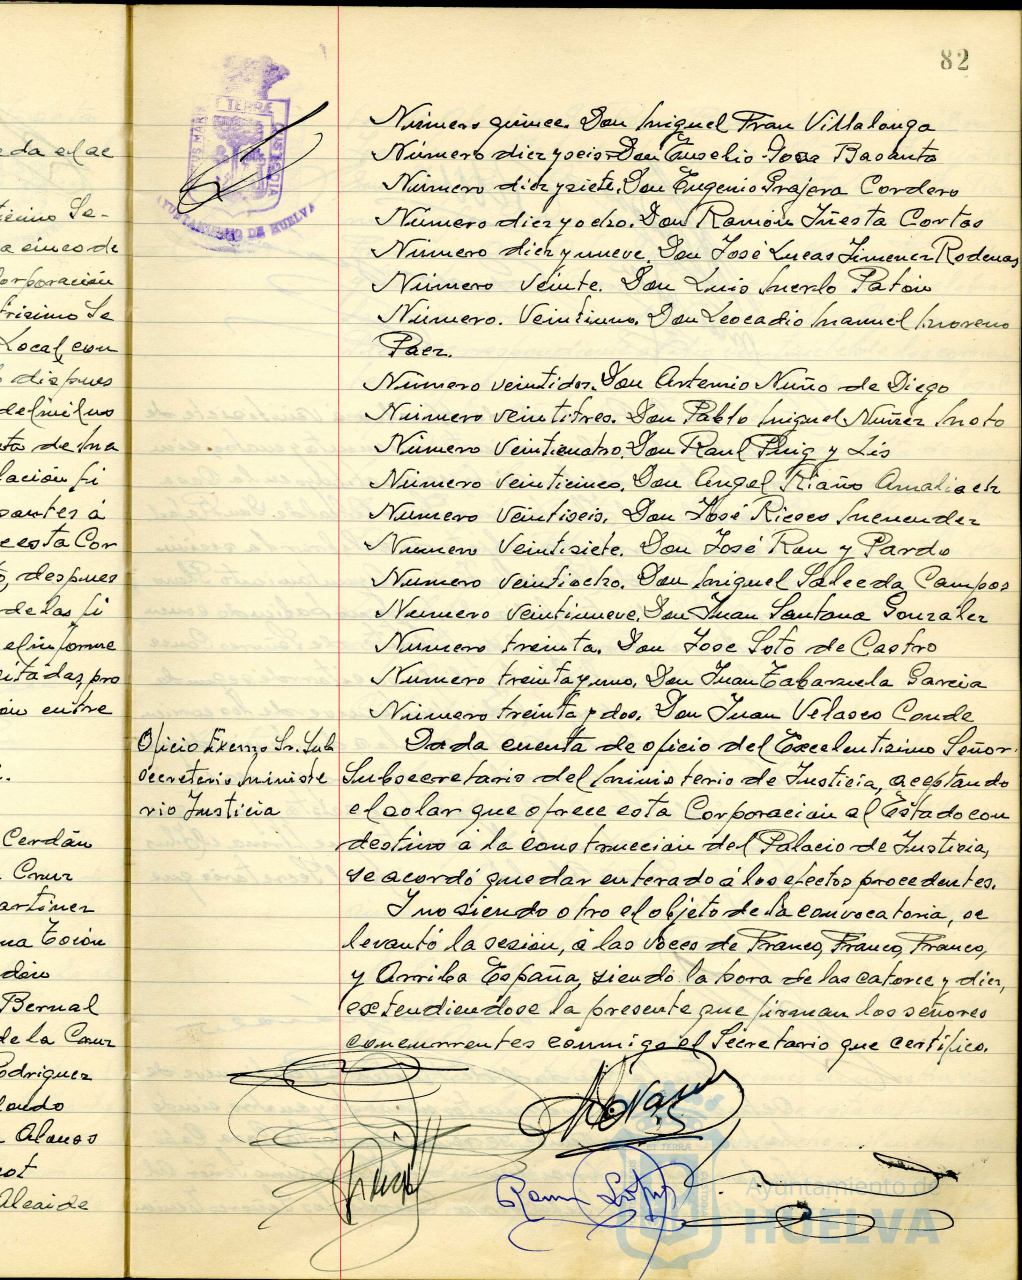 82
da el ac
Se-
a cinco de
orporación
trisimo Se
Local, con
dispues
ta de Ma
lación fi
santes á
e esta Cor
despues
de las fi
el informe
citadas, pro
entre
Cerdán
Cruz
artinez
na Tocón
Bernal
de la Cruz
odriguez
Alonso
Alcaide
PORTUS MARIS ET TERRAE CUSTODIA
AYUNTAMIENTO DE HUELVA
Número quince. Don Miguel Fran Villalonga
Número diez y seis. Don Eusebio Basanta
Número diez y siete. Don Eugenio Grajera Cordero
Número diez y ocho. Don Ramón Iñesta Cortas
Número diez y nueve. Don José Lucas Jimenez Rodenas
Número veinte. Don Luis Merlo Patón
Número. Veintiuno. Don Leocadio Manuel Moreno
Paez.
Número veintidos. Don Artemio Nuño de Diego
Número veintitres. Don Pablo Miguel Nuñez Moto
Número veinticuatro. Don Raul Puig y Lis
Número veinticinco. Don Angel Riaño
Número veintiseis. Don José Riesco Menendez
Número veintisiete. Don José Rou y Pardo
Número veintiocho. Don Miguel Salceda Campos
Número veintinueve. Don Juan Santana Gonzalez
Número treinta. Don Jose Soto de Castro
Número treinta y uno. Don Juan Tabaruela Garcia
Número treinta y dos. Don Juan Velasco Conde
Oficio Excmo Sr. Sub
secretario Ministe
rio Justicia
Dada cuenta de oficio del Excelentisimo Señor
Subsecretario del Ministerio de Justicia, aceptando
el solar que ofrece esta Corporación al Estado con
destino á la construcción del Palacio de Justicia,
se acordó quedar enterado á los efectos procedentes.
Y no siendo otro el objeto de la convocatoria, se
levantó la sesión, á las voces de Franco, Franco, Franco,
y Arriba España, siendo la hora de las catorce y diez,
extendiendose la presente que firman los señores
concurrentes conmigo el Secretario que certifico.
Ayuntamiento de
HUELVA